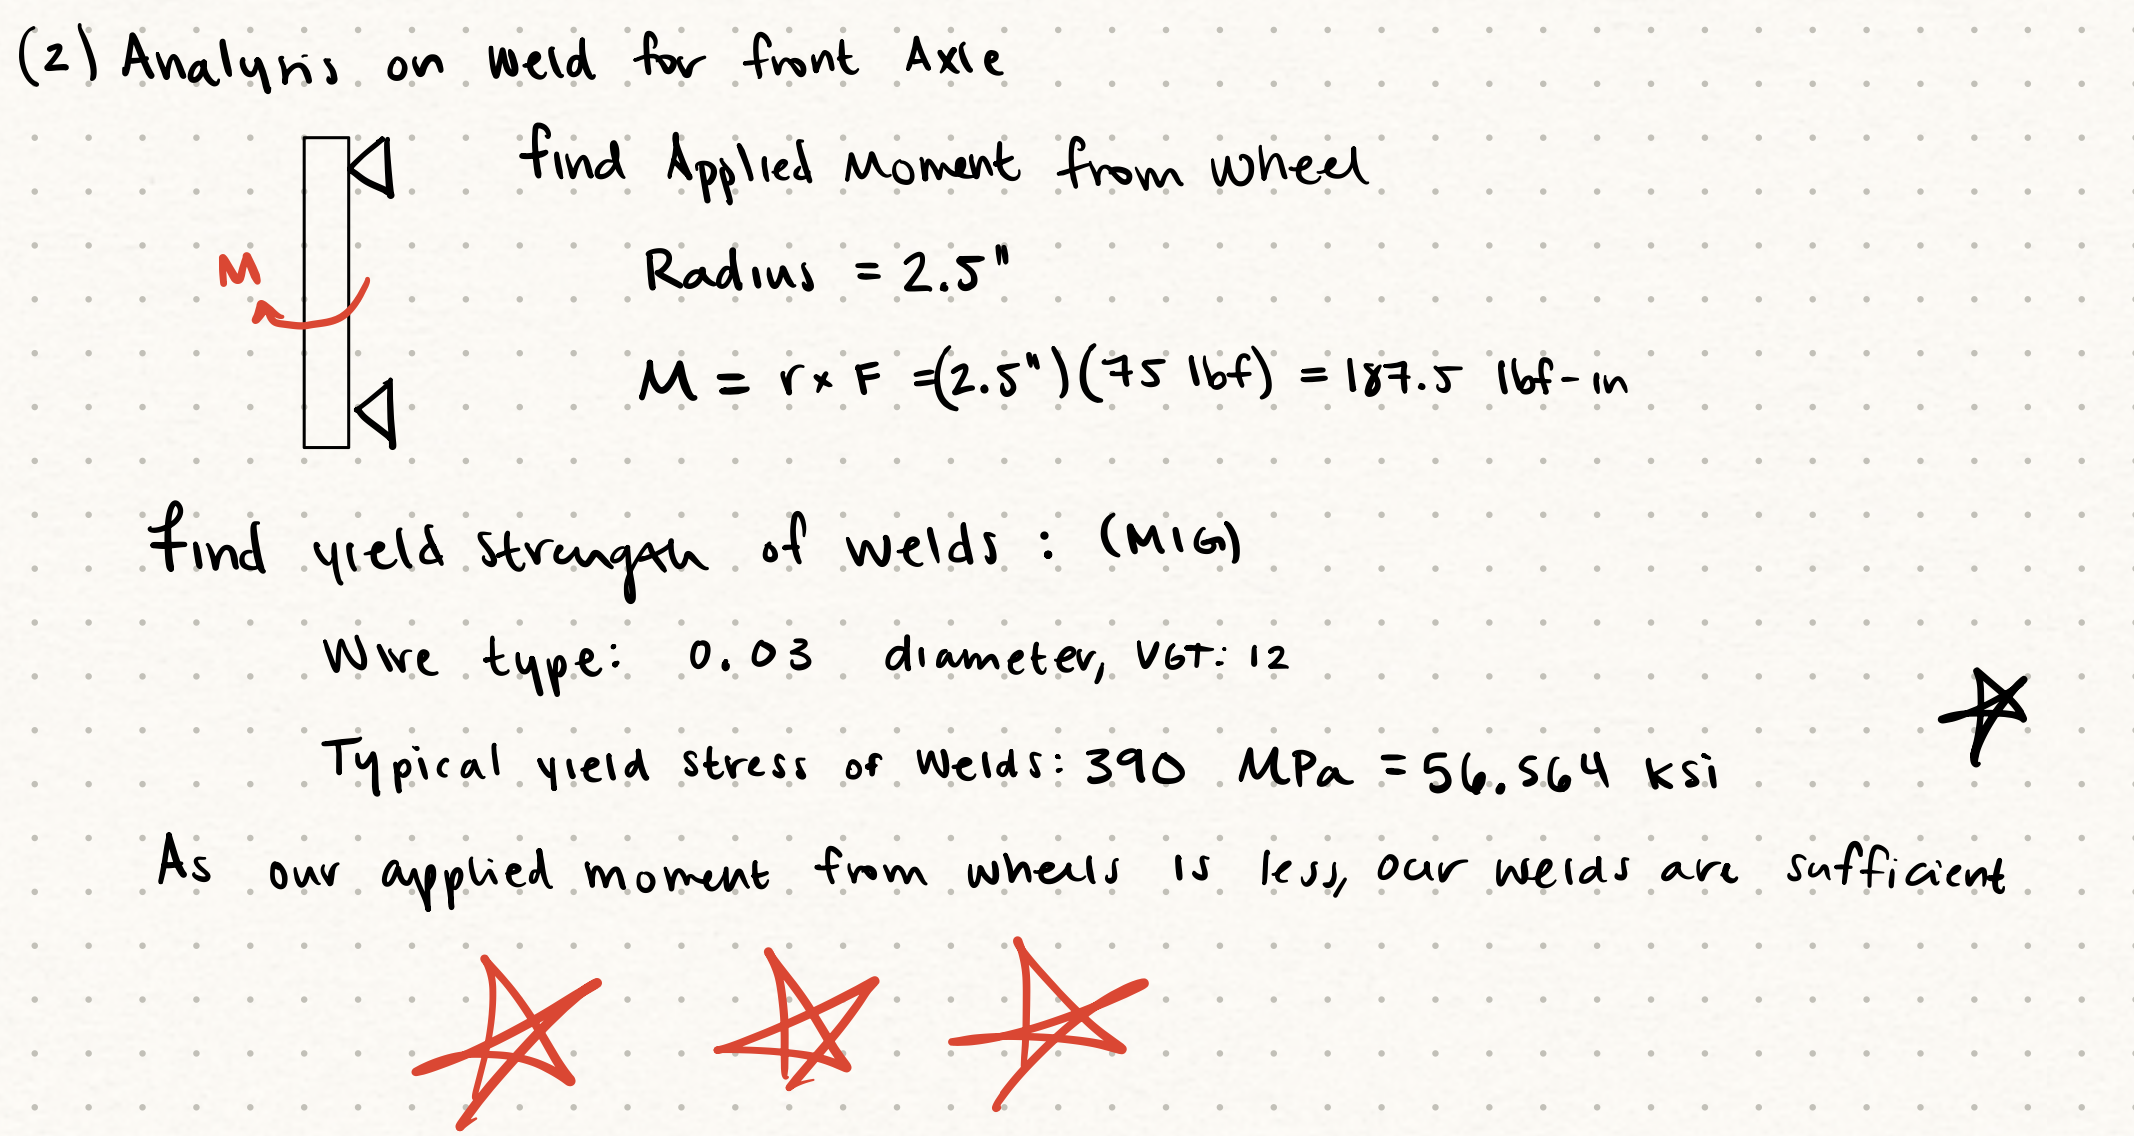 (2) Analysis on weld for front Axle
find Applied Moment from wheel
Radius = 2.5"
M
M = r x F =(2.5")(75 lbf) = 187.5 lbf-in
find yield strength of welds : (MIG)
Wire type: 0.03 diameter, VGT: 12
Typical yield stress of welds: 390 MPa = 56.564 ksi
As our applied moment from wheels is less, our welds are sufficient